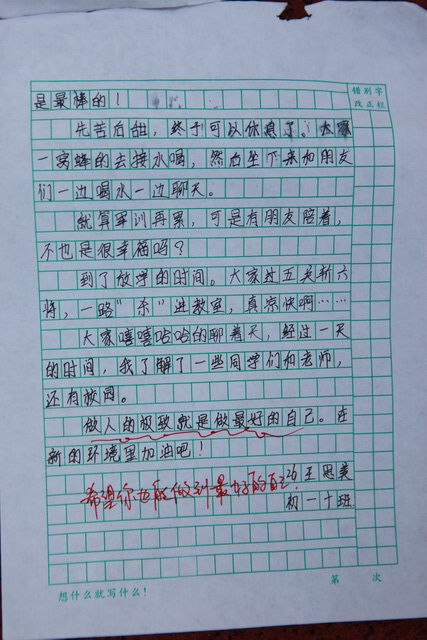 错别字
改正栏
是最棒的！
先苦后甜，终于可以休息了。大家
一窝蜂的去接水喝，然后坐下来和朋友
们一边喝水一边聊天。
就算军训再累，可是有朋友陪着，
不也是很幸福吗？
到了放学的时间。大家过五关斩六
将，一路“杀”进教室，真凉快啊……
大家嘻嘻哈哈的聊着天，经过一天
的时间，我了解了一些同学们和老师，
还有校园。
做人的极致就是做最好的自己。在
新的环境里加油吧！
26王思美
希望你也能做到最好的自己！
初一十班
第 次
想什么就写什么！